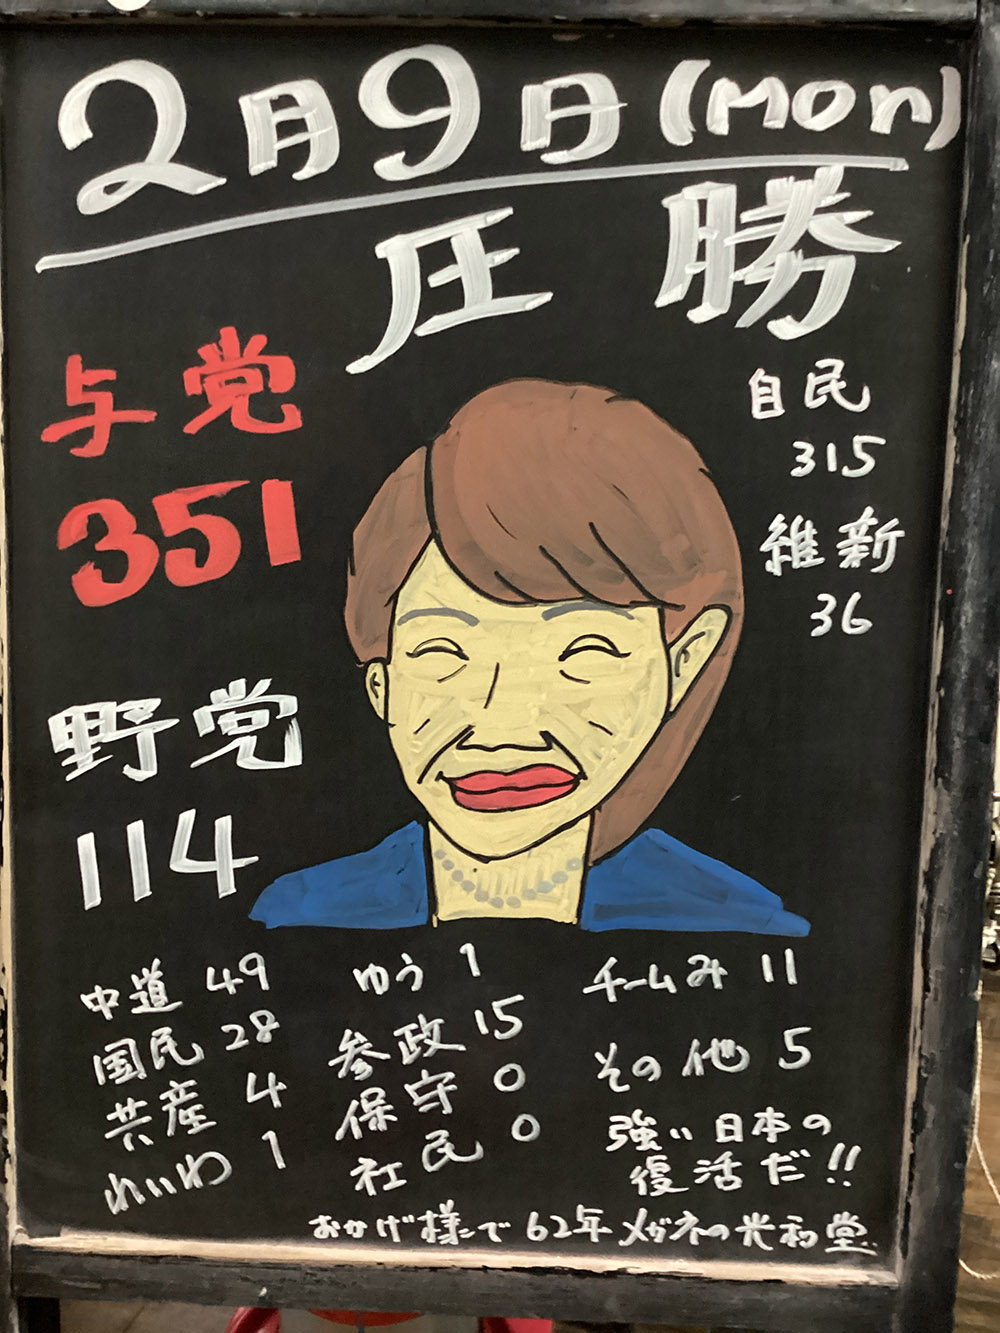 2月9日(Mon)
圧勝
与党
351
自民
315
維新
36
野党
114
中道 49
国民 28
共産 4
れいわ 1
ゆう 1
参政 15
保守 0
社民 0
チームみ 11
その他 5
強い日本の
復活だ!!
おかげ様で62年メガネの光和堂